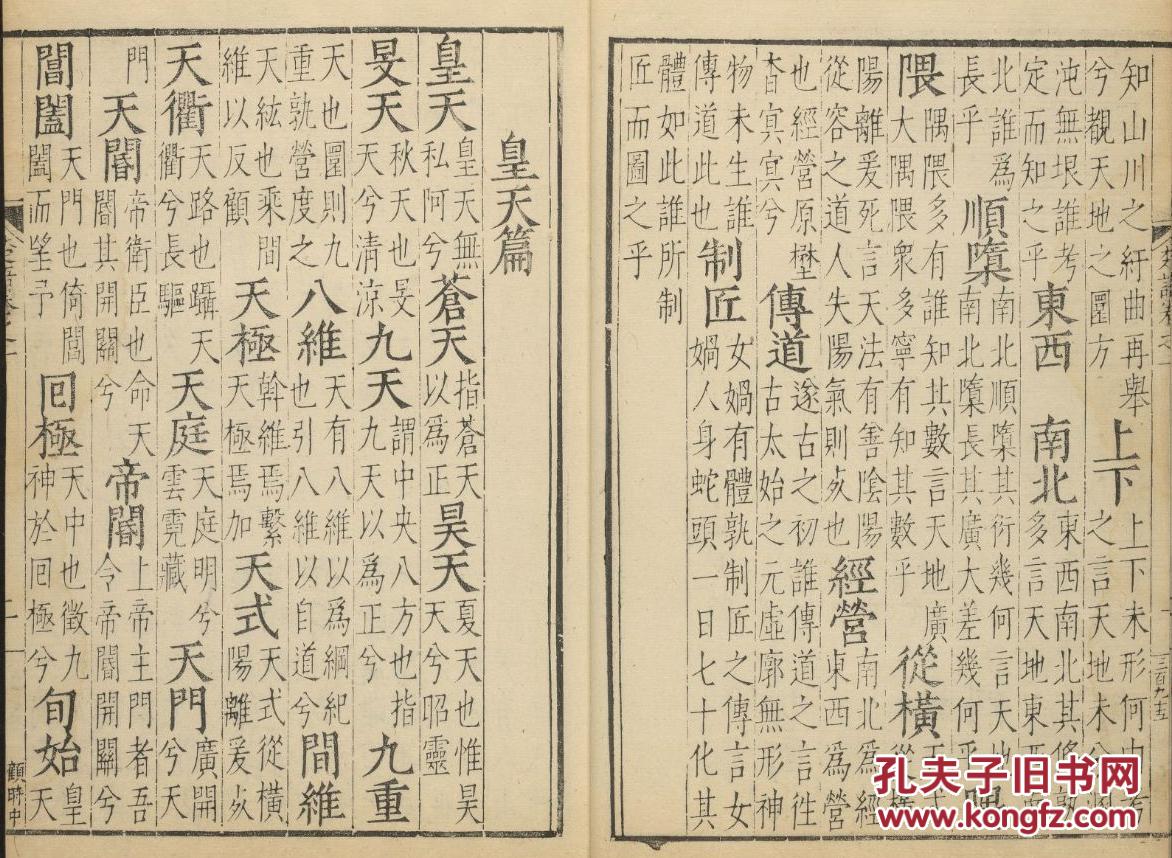 知山川之紆曲再舉兮覩天地之圜方 上下 上下未形何由考之言天地未分溷
沌無垠誰考定而知之乎 東西 南北 東西南北其脩孰多言天地東西南
北誰爲長乎 順隳 南北順隳其衍幾何言天地南北隳長其廣大差幾何乎 隅
隈 隅隈多有誰知其數言天地廣大隅隈衆多寧有知其數乎 從橫 天式從橫
陽離爰死言天法有善陰陽從容之道人失陽氣則死也 經營 南北爲經東西爲營
也經營原壄杳冥冥兮 傳道 遂古之初誰傳道之言往古太始之元虛廓無形神
物未生誰傳道此也 制匠 女媧有體孰制匠之傳言女媧人身蛇頭一日七十化其
體如此誰所制匠而圖之乎
皇天篇
皇天 皇天無私阿兮 蒼天 指蒼天以爲正 昊天 夏天也惟昊天兮昭靈
旻天 秋天也旻天兮清涼 九天 謂中央八方也指九天以爲正兮 九重
天也圜則九重孰營度之 八維 天有八維以爲綱紀也引八維以自道兮 間維
天紘也乘間維以反顧 天極 斡維焉繫天極焉加 天式 天式從橫陽離爰死
天衢 天路也躡天衢兮長驅 天庭 天庭明兮雲霓藏 天門 廣開兮天
門 天閽 帝衛臣也命天閽其開關兮 帝閽 上帝主門者吾令帝閽開關兮
閶闔 天門也倚閶闔而望予 囘極 天中也徵九神於囘極兮 旬始 皇天
顧時中
孔夫子旧书网
www.kongfz.com